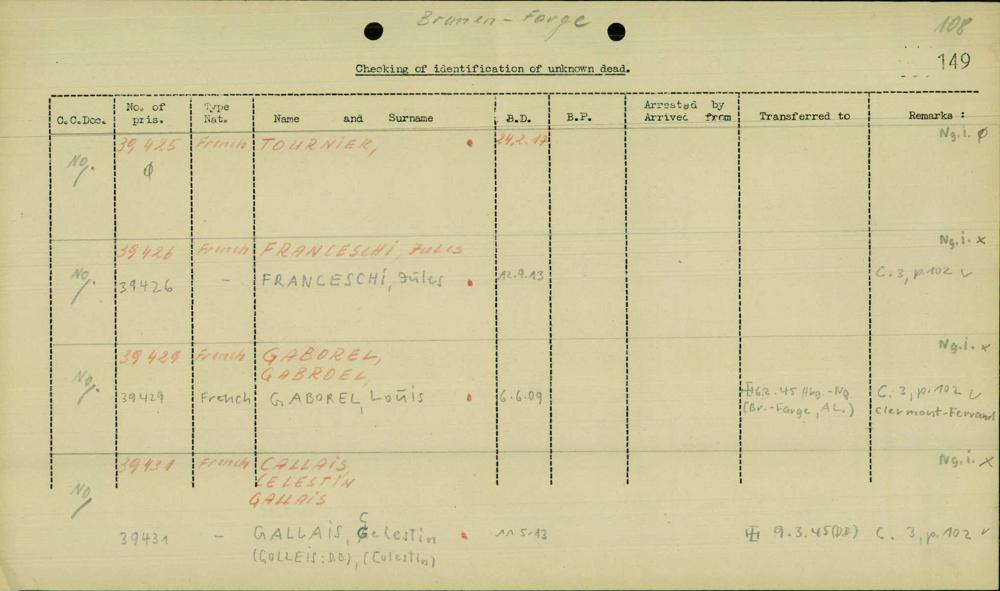 Brumen - Farge
108
149
Checking of identification of unknown dead.
C.C.Doc. No. of pris. Type Nat. Name and Surname B.D. B.P. Arrested by Arrived from Transferred to Remarks :
No. 39 425 French TOURNIER, 24.2.17 Ng.i. ϕ
ϕ
39 426 French FRANCESCHi, Jules Ng.i. x
No. 39426 - FRANCESCHi, Jules 12.9.13 C. 3, p.102 v
39 429 French GABOREL, Ng.i. x
GABROEL,
No. 39429 French GABOREL, Louis 6.6.09 6.2.45 Hbg.-Ng. C. 3, p.102 v
(Br.-Farge, AL.) Clermont-Ferrand
39431 French CALLAiS Ng.i. x
No. CELESTiN
GALLAiS
39431 - GALLAiS, Celestin 11.5.13 9.3.45 (D.B) C. 3, p.102 v
(GOLLEiS: D.B), (Colestin)